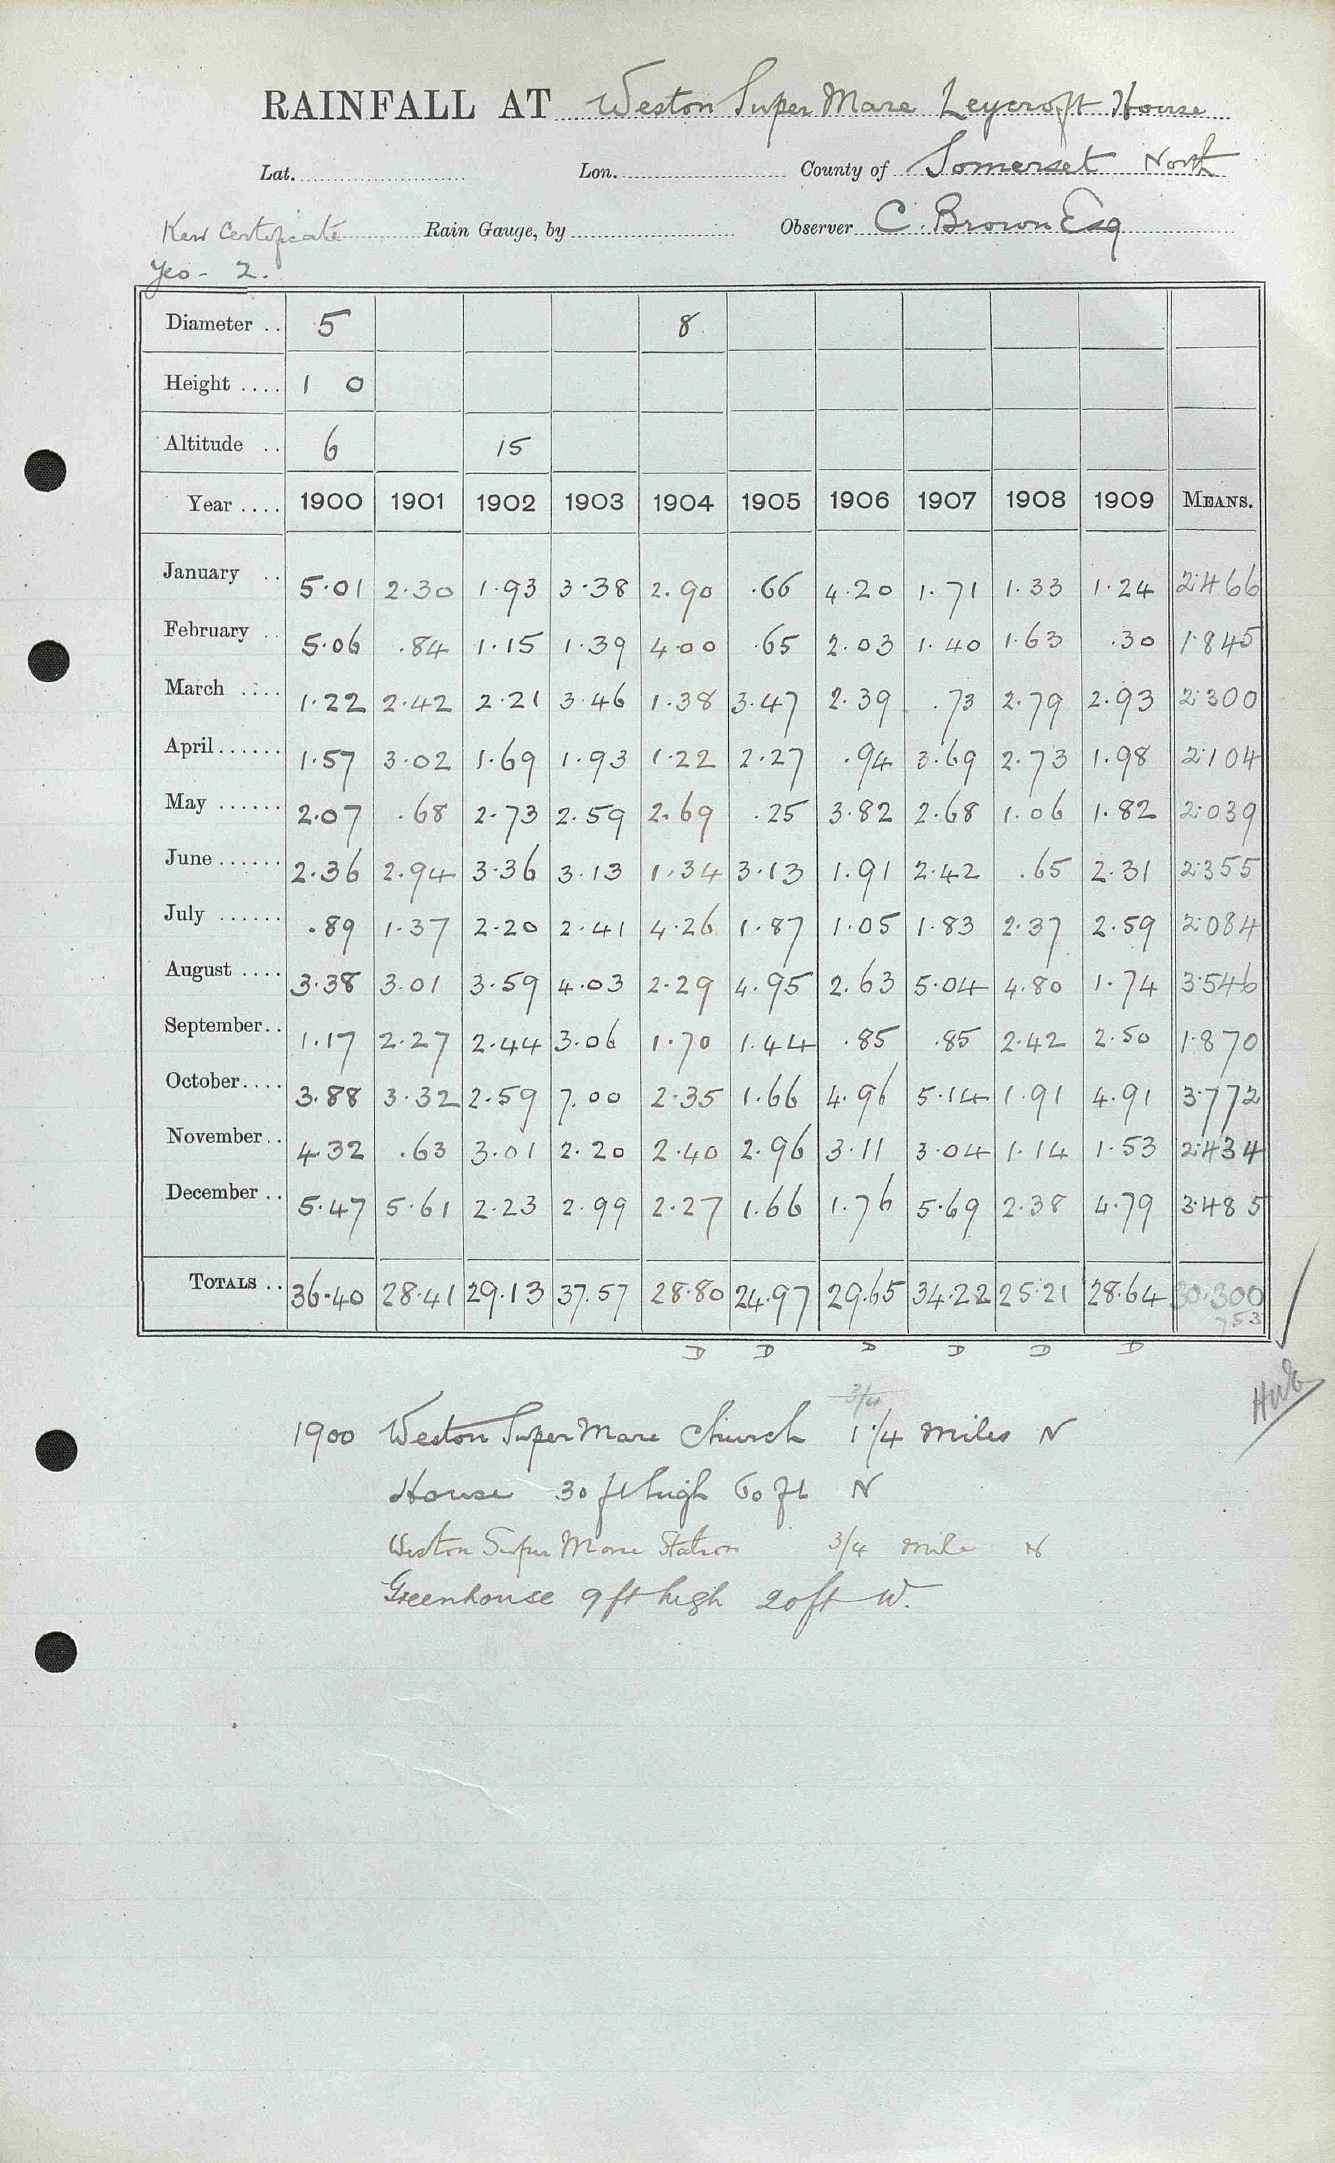 RAINFALL AT Weston Super Mare Leycroft House
Lat. Lon. County of Somerset North
Kew Certificate Rain Gauge, by Observer C. Brown Esq
Yeo - 2.
Diameter .. 5 8
Height .... 1 0
Altitude .. 6 15
Year .... 1900 1901 1902 1903 1904 1905 1906 1907 1908 1909 MEANS.
January .. 5.01 2.30 1.93 3.38 2.90 .66 4.20 1.71 1.33 1.24 2.466
February .. 5.06 .84 1.15 1.39 4.00 .65 2.03 1.40 1.63 .30 1.845
March .... 1.22 2.42 2.21 3.46 1.38 3.47 2.39 .73 2.79 2.93 2.300
April ...... 1.57 3.02 1.69 1.93 1.22 2.27 .94 3.69 2.73 1.98 2.104
May ...... 2.07 .68 2.73 2.59 2.69 .25 3.82 2.68 1.06 1.82 2.039
June ...... 2.36 2.94 3.36 3.13 1.34 3.13 1.91 2.42 .65 2.31 2.355
July ...... .89 1.37 2.20 2.41 4.26 1.87 1.05 1.83 2.37 2.59 2.084
August .... 3.38 3.01 3.59 4.03 2.29 4.95 2.63 5.04 4.80 1.74 3.546
September .. 1.17 2.27 2.44 3.06 1.70 1.44 .85 .85 2.42 2.50 1.870
October .... 3.88 3.32 2.59 7.00 2.35 1.66 4.96 5.14 1.91 4.91 3.772
November .. 4.32 .63 3.01 2.20 2.40 2.96 3.11 3.04 1.14 1.53 2.434
December .. 5.47 5.61 2.23 2.99 2.27 1.66 1.76 5.69 2.38 4.79 3.485
TOTALS .. 36.40 28.41 29.13 37.57 28.80 24.97 29.65 34.22 25.21 28.64 30.300
753
D D D D D D
3/4
1900 Weston Super Mare Church 1 1/4 miles N
House 30 ft high 60 ft N
Weston Super Mare Station 3/4 mile N
Greenhouse 9 ft high 20 ft W.